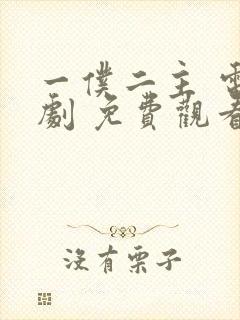 一僕二主 電
劇 免費觀看
沒有栗子